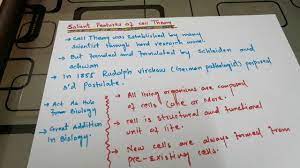 Salient Features of cell Theory
→ Cell Theory was established by many
scientist through hard research work.
→ But founded and formulated by Schleiden and
schwan
→ In 1855 Rudolph virchow (German pathologist) proposed
3d Postulate.
→ Act As Role
from Biology
→ Great Addition
in Biology.
→ All living organisms are composed
of cells (one or more)
→ cell is structural and functional
unit of life.
→ New cells are always formed from
pre-existing cells.